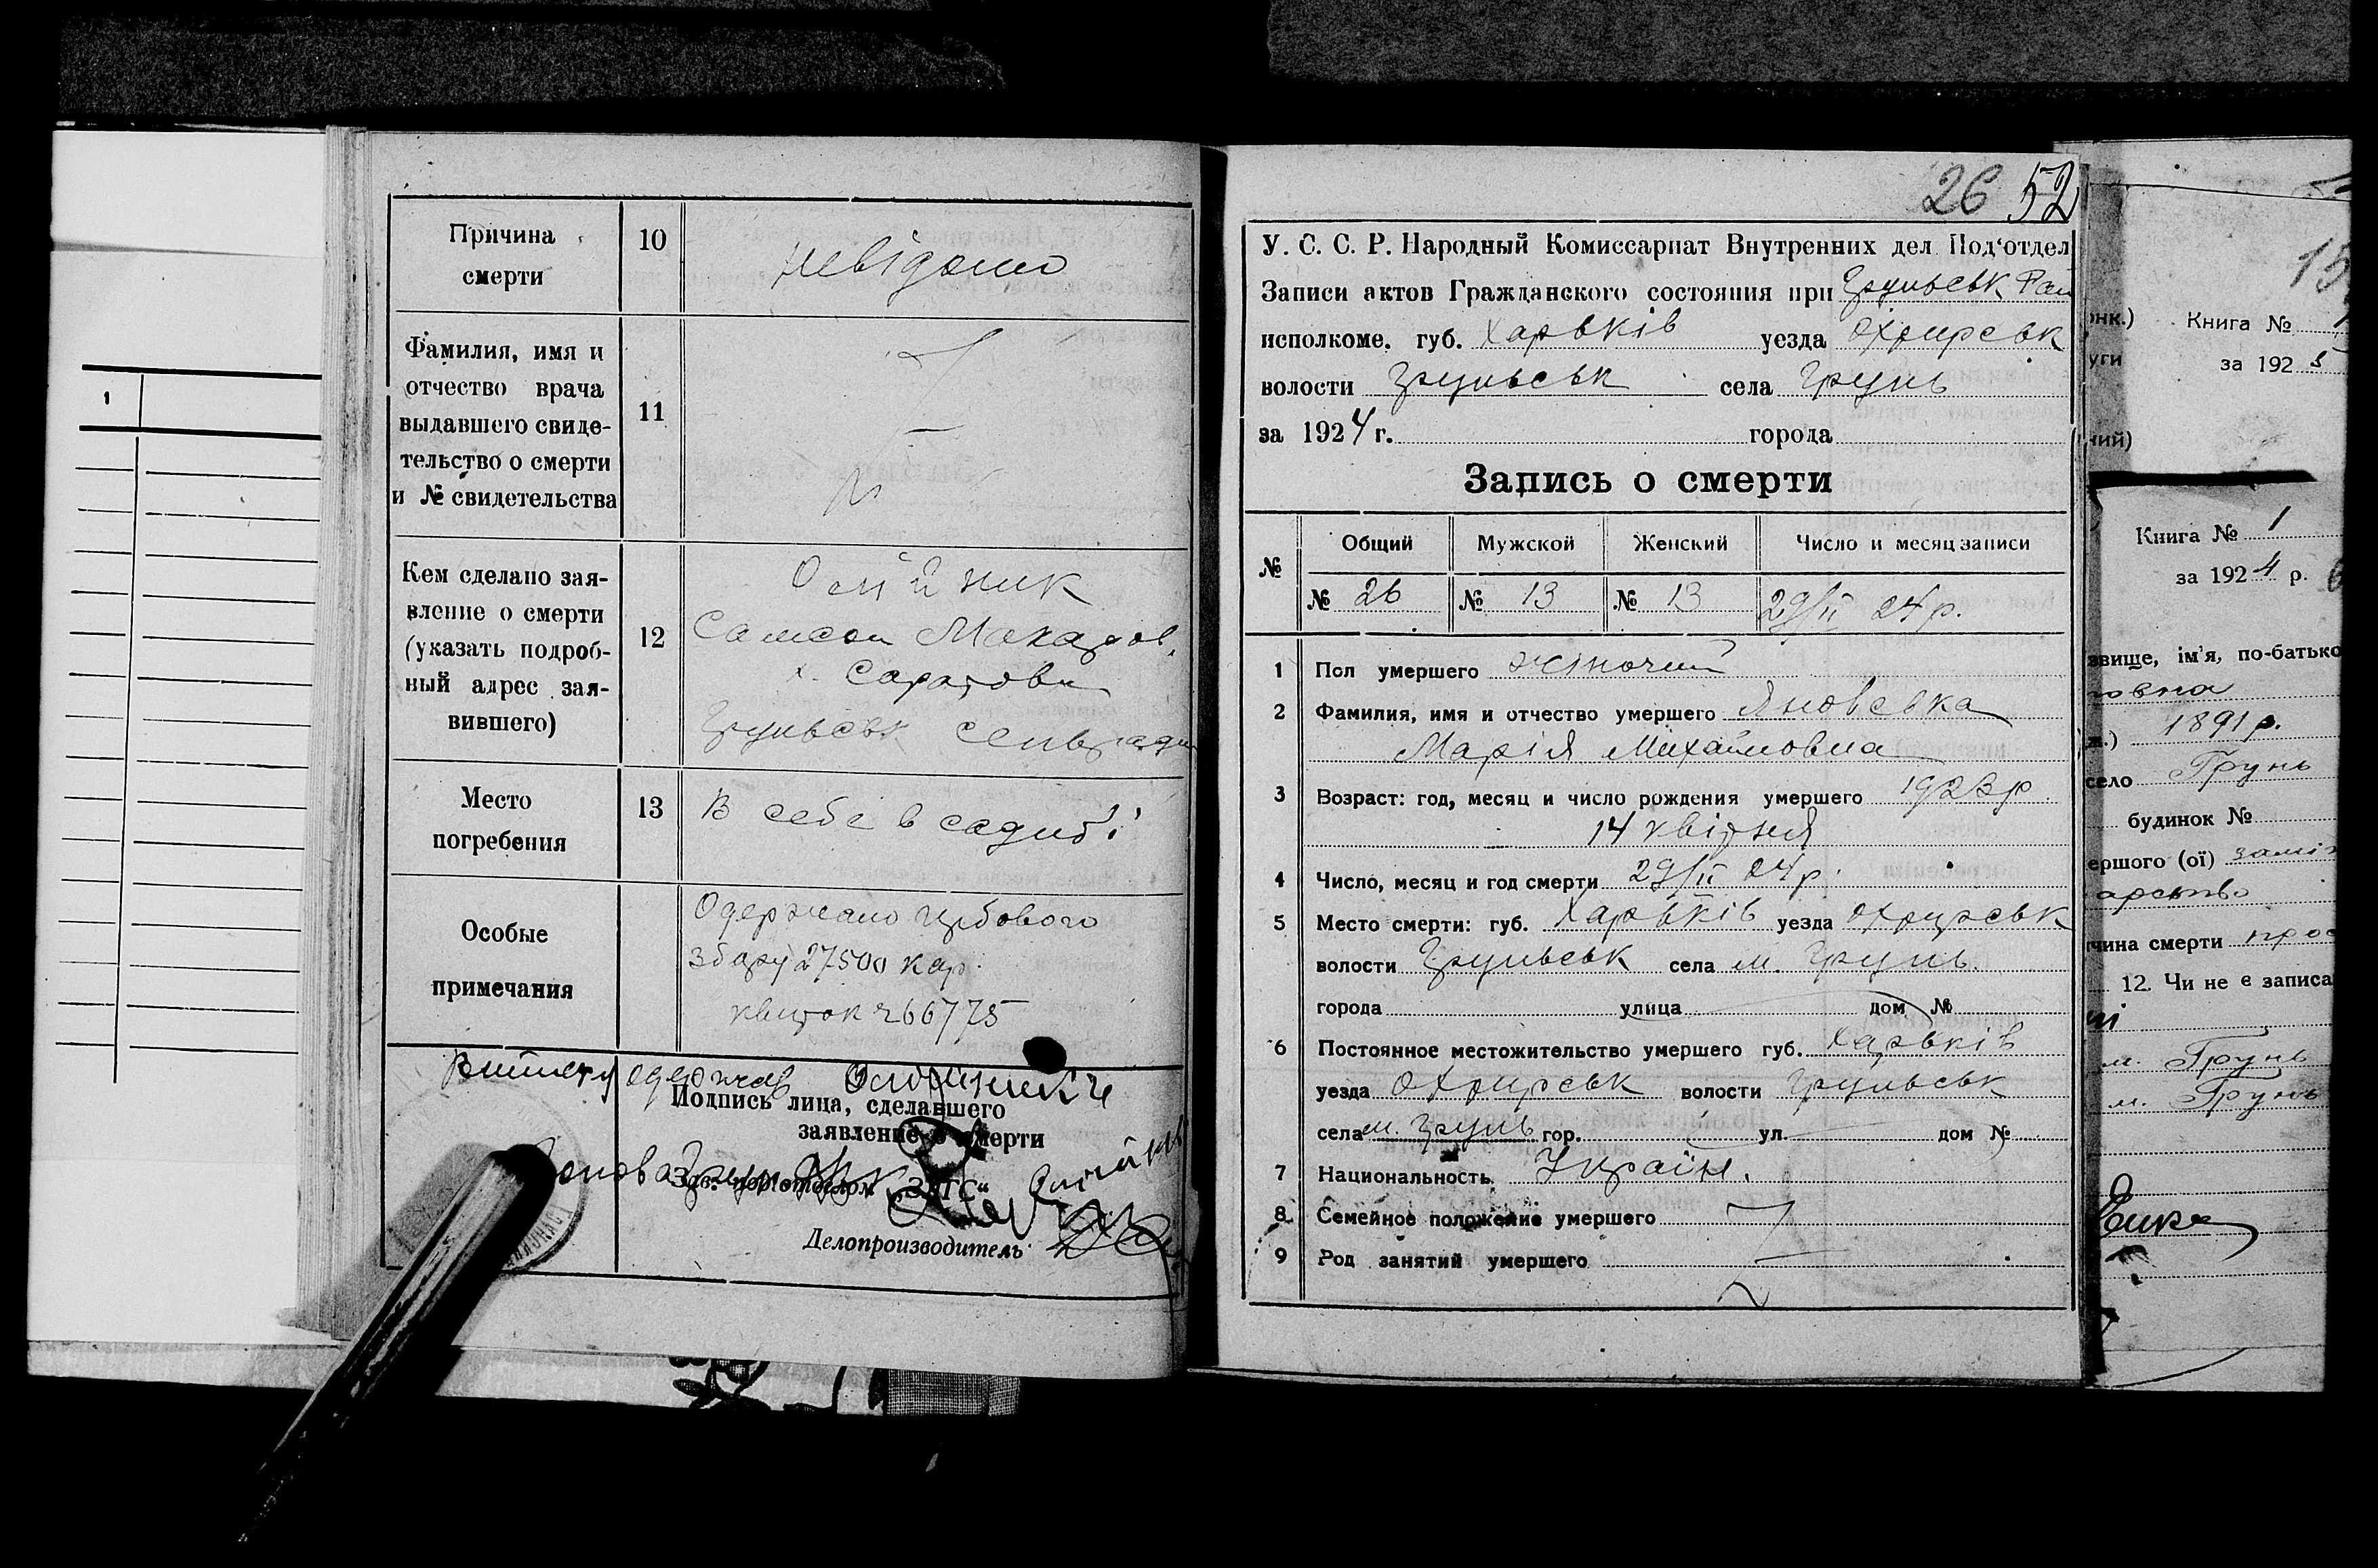 1
Причина смерти
10
невідомо
Фамилия, имя и
отчество врача
выдавшего свиде-
тельство о смерти
и № свидетельства
11
Кем сделано зая-
вление о смерти
(указать подроб-
ный адрес зая-
вившего)
12
Олійник
Самсон Макаров.
х. Саратовка
Грунвськ сельради
Место
погребения
13
В себе в садибі
Особые
примечания
Одержано гербового
збору 27500 кар.
квиток 266775
Виписку одержав Олійник
Подпись лица, сделавшего
заявление о смерти
Зав. подотделом „ЗАГС“
Делопроизводитель
26 52
У. С. С. Р. Народный Комиссариат Внутренних дел Под'отдел
Записи актов Гражданского состояния при Груньвськ Рай
исполкоме. губ. Харьків уезда Охтирськ
волости Груньвськ села Грунь
за 1924 г. города
Запись о смерти
№ Общий Мужской Женский Число и месяц записи
№ 26 № 13 № 13 29/II 24 р.
1 Пол умершего жіночий
2 Фамилия, имя и отчество умершего Яновська
Марія Михайловна
3 Возраст: год, месяц и число рождения умершего 1923 р.
14 квітня
4 Число, месяц и год смерти 29/II 24 р.
5 Место смерти: губ. Харьків уезда Охтирськ
волости Груньвськ села м. Грунь.
города улица дом №
6 Постоянное местожительство умершего губ. Харьків
уезда Охтирськ волости Груньвськ
села м. Грунь гор. ул. дом №
7 Национальность Україн.
8 Семейное положение умершего
9 Род занятий умершего
онк.) Книга №
уги за 192
ний)
Книга № 1
за 1924 р.
звище, ім'я, по-батько
овна
1891 р.
село Грунь
будинок №
ершого (ої) замі
арство
чина смерти
12. Чи не є записа
м. Грунь
м. Грунь